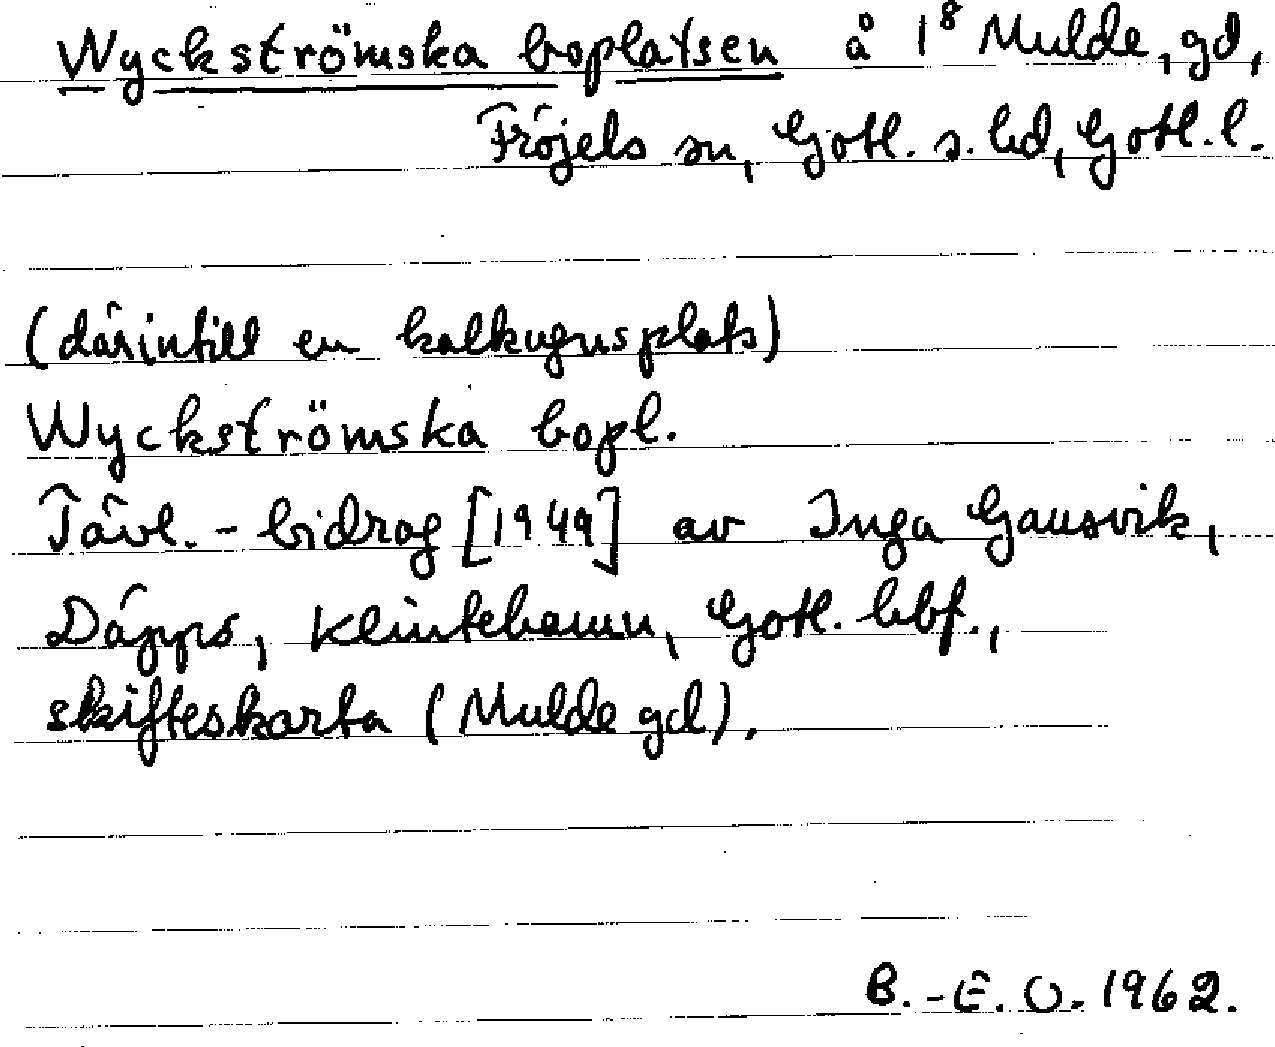 Wyckströmska boplatsen å 1⁸ Mulde, gd,
Fröjels sn, Gotl. s. hd, Gotl. l.
(därintill en kalkugnsplats)
Wyckströmska bopl.
Tävl.-bidrag [1949] av Inga Gansvik,
Däpps, Klintehamn, Gotl. hbf.,
skifteskarta (Mulde gd).
B.-E. O. 1962.